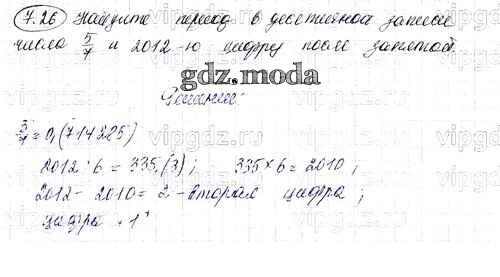 7.26 Найдите период в десятичной записи
числа 5/7 и 2012-ю цифру после запятой.
gdz.moda
Решение:
5/7 = 0,(714285)
2012 : 6 = 335,(3); 335 × 6 = 2010;
2012 - 2010 = 2 - вторая цифра;
цифра "1"
vipgdz.ru